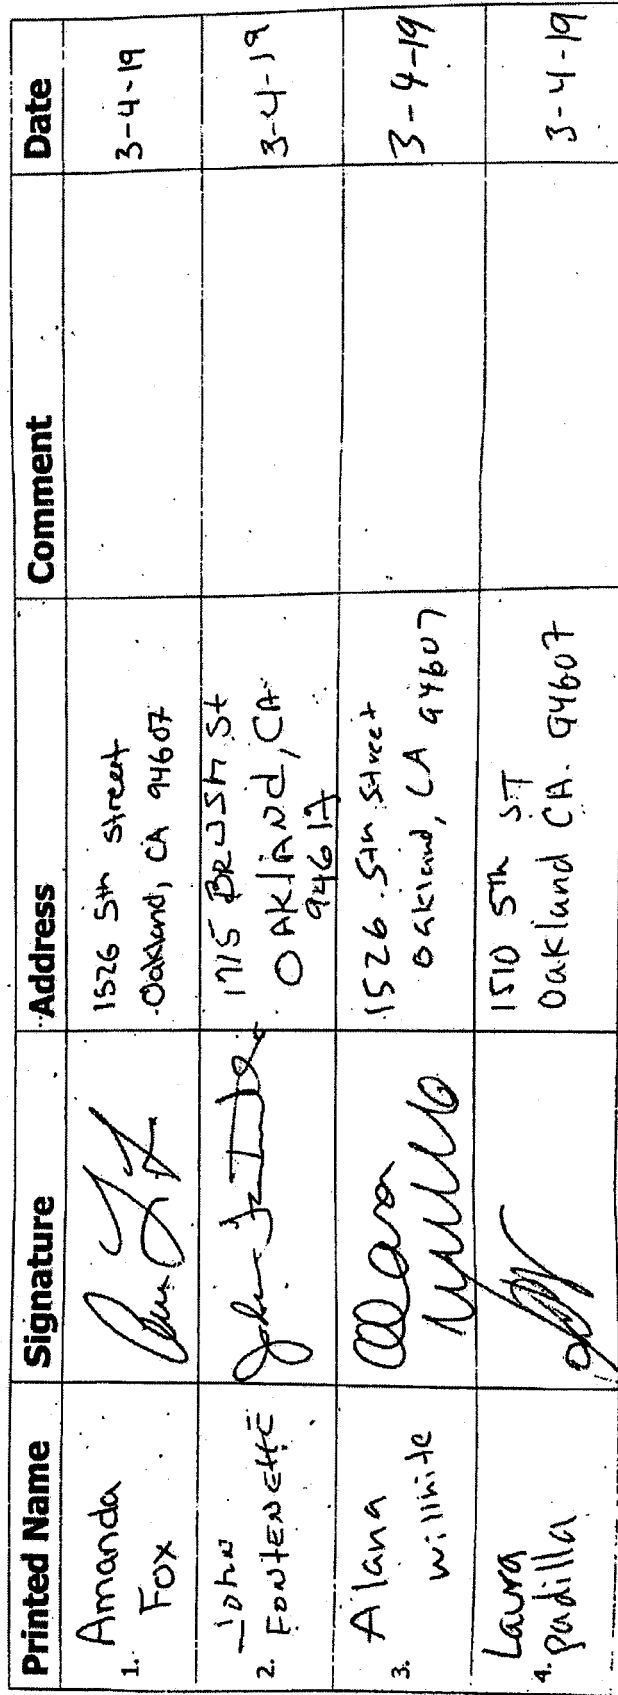 Printed Name Signature Address Comment Date
1. Amanda
Fox
1526 5th Street
Oakland, CA 94607
3-4-19
2. John
FONTENETTE
1715 BRUSH St
OAKLAND, CA
94612
3-4-19
3. Alana
Willhite
1526 5th Street
Oakland, CA 94607
3-4-19
4. Laura
padilla
1510 5th ST
Oakland CA. 94607
3-4-19